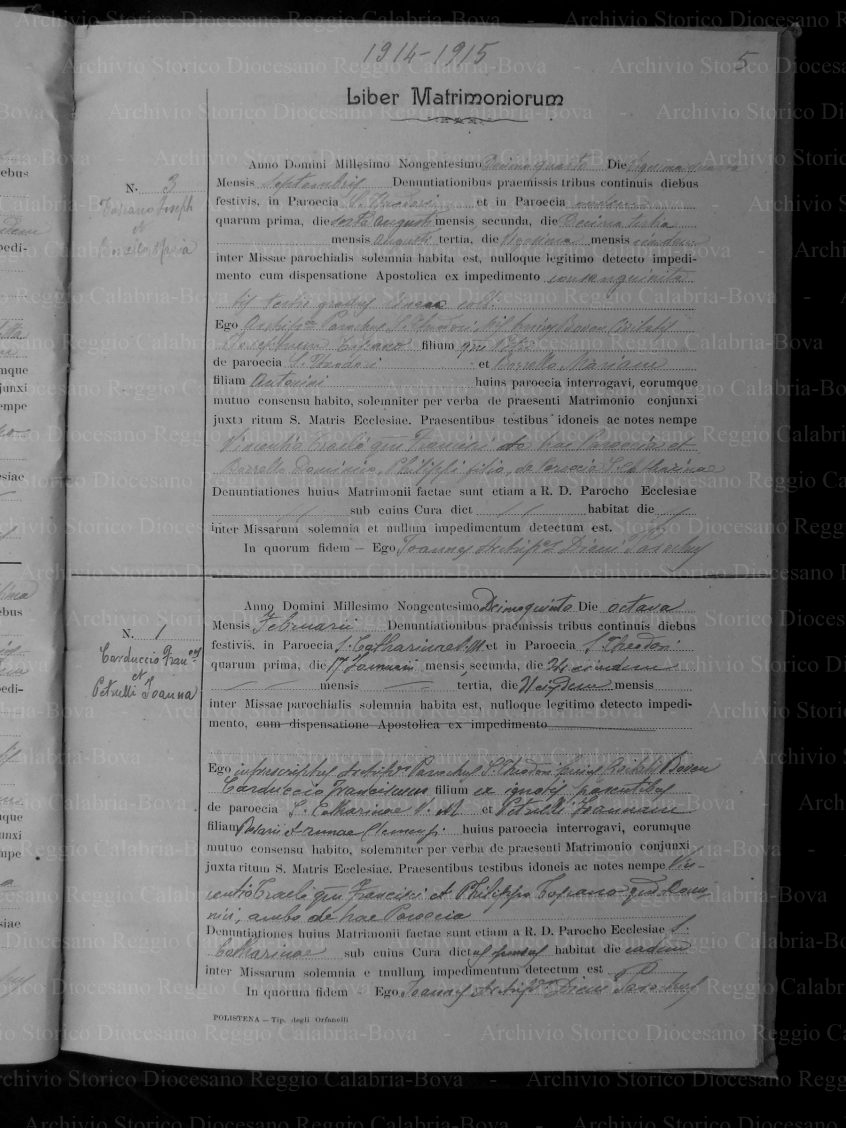 1914-1915
5
Liber Matrimoniorum
N. 3
Tosano Joseph
et
Borrello Maria
Anno Domini Millesimo Nongentesimo Decimoquarto Die
Mensis Septembris Denuntiationibus praemissis tribus continuis diebus
festivis, in Paroecia S. Theodori et in Paroecia eadem
quarum prima, die Augusti mensis, secunda, die Decima tertia
mensis Augusti tertia, die mensis eiusdem
inter Missae parochialis solemnia habita est, nulloque legitimo detecto impedi-
mento cum dispensatione Apostolica ex impedimento consanguinita
tis tertii gradus coll.
Ego Archip. Parochus S. Theodori hujus Bovae Civitatis
Josephum Tosano filium qm
de paroecia S. Theodori et Borrello Mariam
filiam Antonini huius paroecia interrogavi, eorumque
mutuo consensu habito, solemniter per verba de praesenti Matrimonio conjunxi
juxta ritum S. Matris Ecclesiae. Praesentibus testibus idoneis ac notes nempe
Vincentio Traclò qm Francisci de hac Paroecia et
Borrello Dominico, Philippi filio, de Paroecia S. Catharinae
Denuntiationes huius Matrimonii factae sunt etiam a R. D. Parocho Ecclesiae
sub cuius Cura dict habitat die
inter Missarum solemnia et nullum impedimentum detectum est.
In quorum fidem — Ego Joannes Archip. Dieni Parochus
N. 1
Carduccio Fran.
et
Petrulli Joanna
Anno Domini Millesimo Nongentesimo Decimoquinto Die octava
Mensis Februarii Denuntiationibus praemissis tribus continuis diebus
festivis, in Paroecia S. Catharinae V. M. et in Paroecia S. Theodori
quarum prima, die 17 Januarii mensis, secunda, die 24 eiusdem
mensis tertia, die 31 eiusdem mensis
inter Missae parochialis solemnia habita est, nulloque legitimo detecto impedi-
mento, cum dispensatione Apostolica ex impedimento
Ego infrascriptus Archip. Parochus S. Theodori hujus Civitatis Bovae
Carduccio Franciscum filium ex ignotis parentibus
de paroecia S. Catharinae V. M. et Petrulli Joannam
filiam huius paroecia interrogavi, eorumque
mutuo consensu habito, solemniter per verba de praesenti Matrimonio conjunxi
juxta ritum S. Matris Ecclesiae. Praesentibus testibus idoneis ac notes nempe Vin-
centio Traclò qm Francisci et Philippo Tosano qm Domi-
nici, ambo de hac Paroecia
Denuntiationes huius Matrimonii factae sunt etiam a R. D. Parocho Ecclesiae S.
Catharinae sub cuius Cura dictus sponsus habitat die eadem
inter Missarum solemnia e tnullum impedimentum detectum est
In quorum fidem Ego Joannes Archip. Dieni Parochus
POLISTENA – Tip. degli Orfanelli
Archivio Storico Diocesano Reggio Calabria-Bova